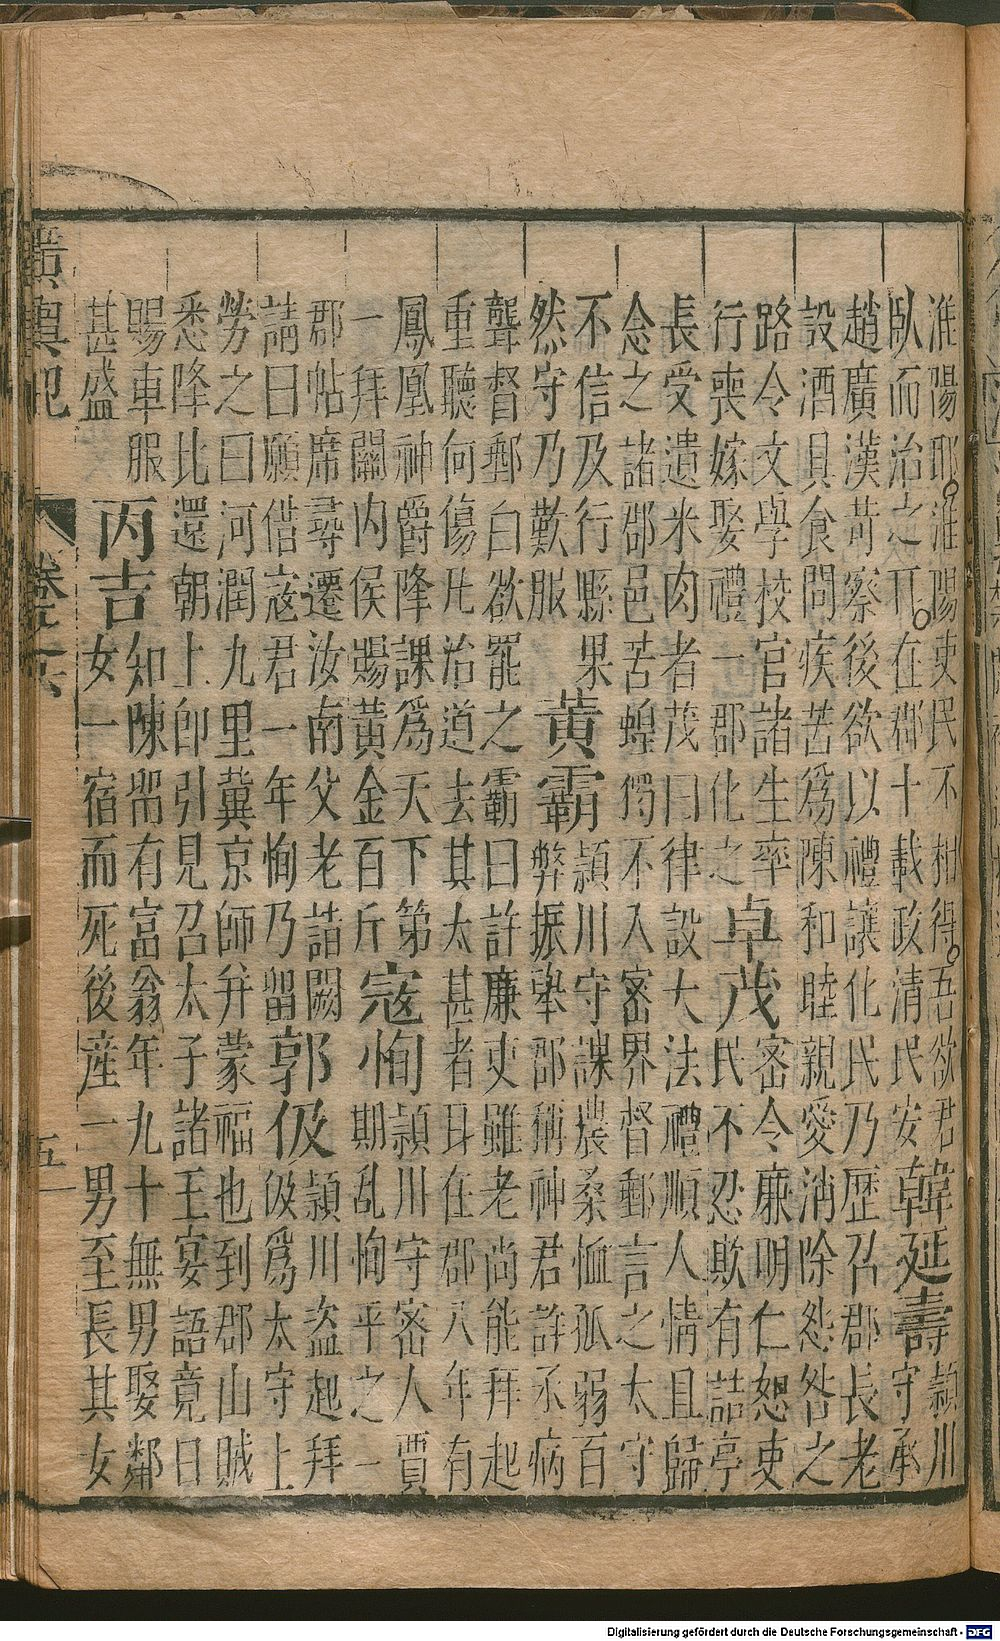 淮陽耶。淮陽吏民不相得。吾欲君
臥而治之耳。在郡十載政清民安
韓延壽
潁川
守承
趙廣漢苛察後欲以禮讓化民乃歷召郡長老
設酒具食問疾苦爲陳和睦親愛消除怨咎之
路令文學校官諸生率
行喪嫁娶禮一郡化之
卓茂
密令廉明仁恕吏
民不忍欺有詰亭
長受遺米肉者茂曰律設大法禮順人情且歸
念之諸郡邑苦蝗獨不入密界督郵言之太守
不信及行縣果
然守乃歎服
黃霸
潁川守課農桑恤孤弱百
弊振舉郡稱神君許丞病
聾督郵白欲罷之霸曰許廉吏雖老尚能拜起
重聽何傷凡治道去其太甚者耳在郡八年有
鳳凰神爵降課爲天下第
一拜關內侯賜黃金百斤
寇恂
潁川守密人賈
期亂恂平之一
郡帖席尋遷汝南父老詣闕
詣曰願借寇君一年恂乃留
郭伋
潁川盜起拜
伋爲太守上
勞之曰河潤九里冀京師并蒙福也到郡山賊
悉降比還朝上卽引見召太子諸王宴語竟日
賜車服
甚盛
丙吉
知陳留有富翁年九十無男娶鄰
女一宿而死後產一男至長其女
廣輿記
卷之六
五
Digitalisierung gefördert durch die Deutsche Forschungsgemeinschaft - DFG